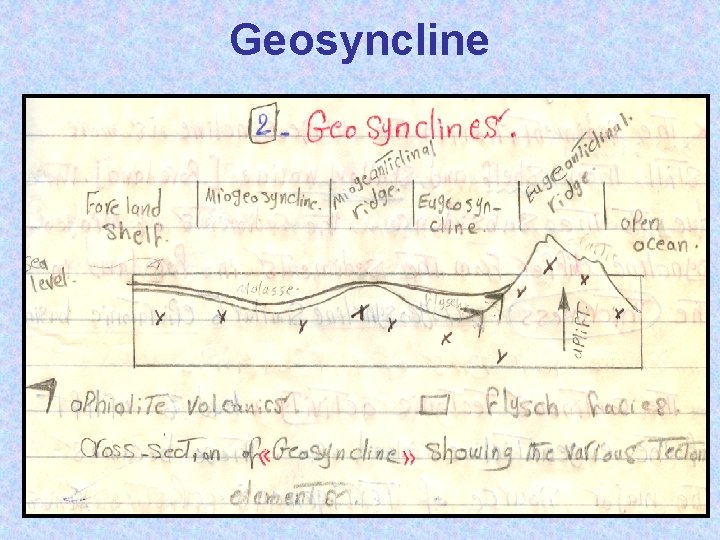 Geosyncline
2- Geosynclines.
Foreland shelf.
Miogeosyncline.
Miogeanticlinal ridge.
Eugeosyn-
cline.
Eugeanticlinal ridge.
open
ocean.
sea
level.
Molasse.
Flysch
uplift
X X Y X Y X Y Y X X X
ophiolite volcanics
Flysch facies.
Cross-section of «Geosyncline» showing the various Tecton
elements